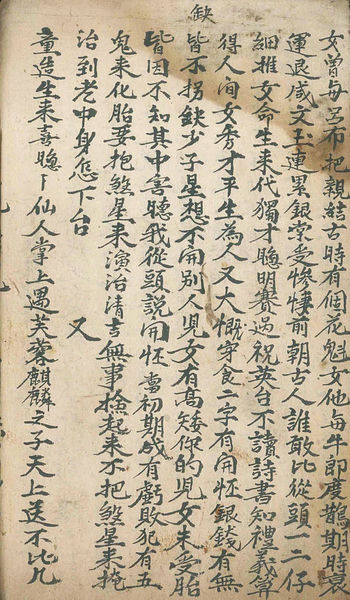 缺
女曾每呂布把親結古時有個花魁女他每牛郎度鵲期時衰
運退咸文玉連累銀棠受慘悽前朝古人誰敢比從頭一二仔
細推女命生來代獨才聰明賽過祝英台不讀詩書知禮義算
得人间女秀才平生為人又大慨穿食二字有開怀銀錢有無
皆不拐缺少子星想不開別人兒女有高矮你的兒女未受胎
皆因不知其中害聽我從頭說開怀當初期成有虧敗犯有五
鬼來化胎要抱煞星來演治清吉無事撿起來不把煞星來掩
治到老中身怎下台
又
童造生來喜聰〻仙人掌上遇芙蓉麒麟之子天上送不比凡